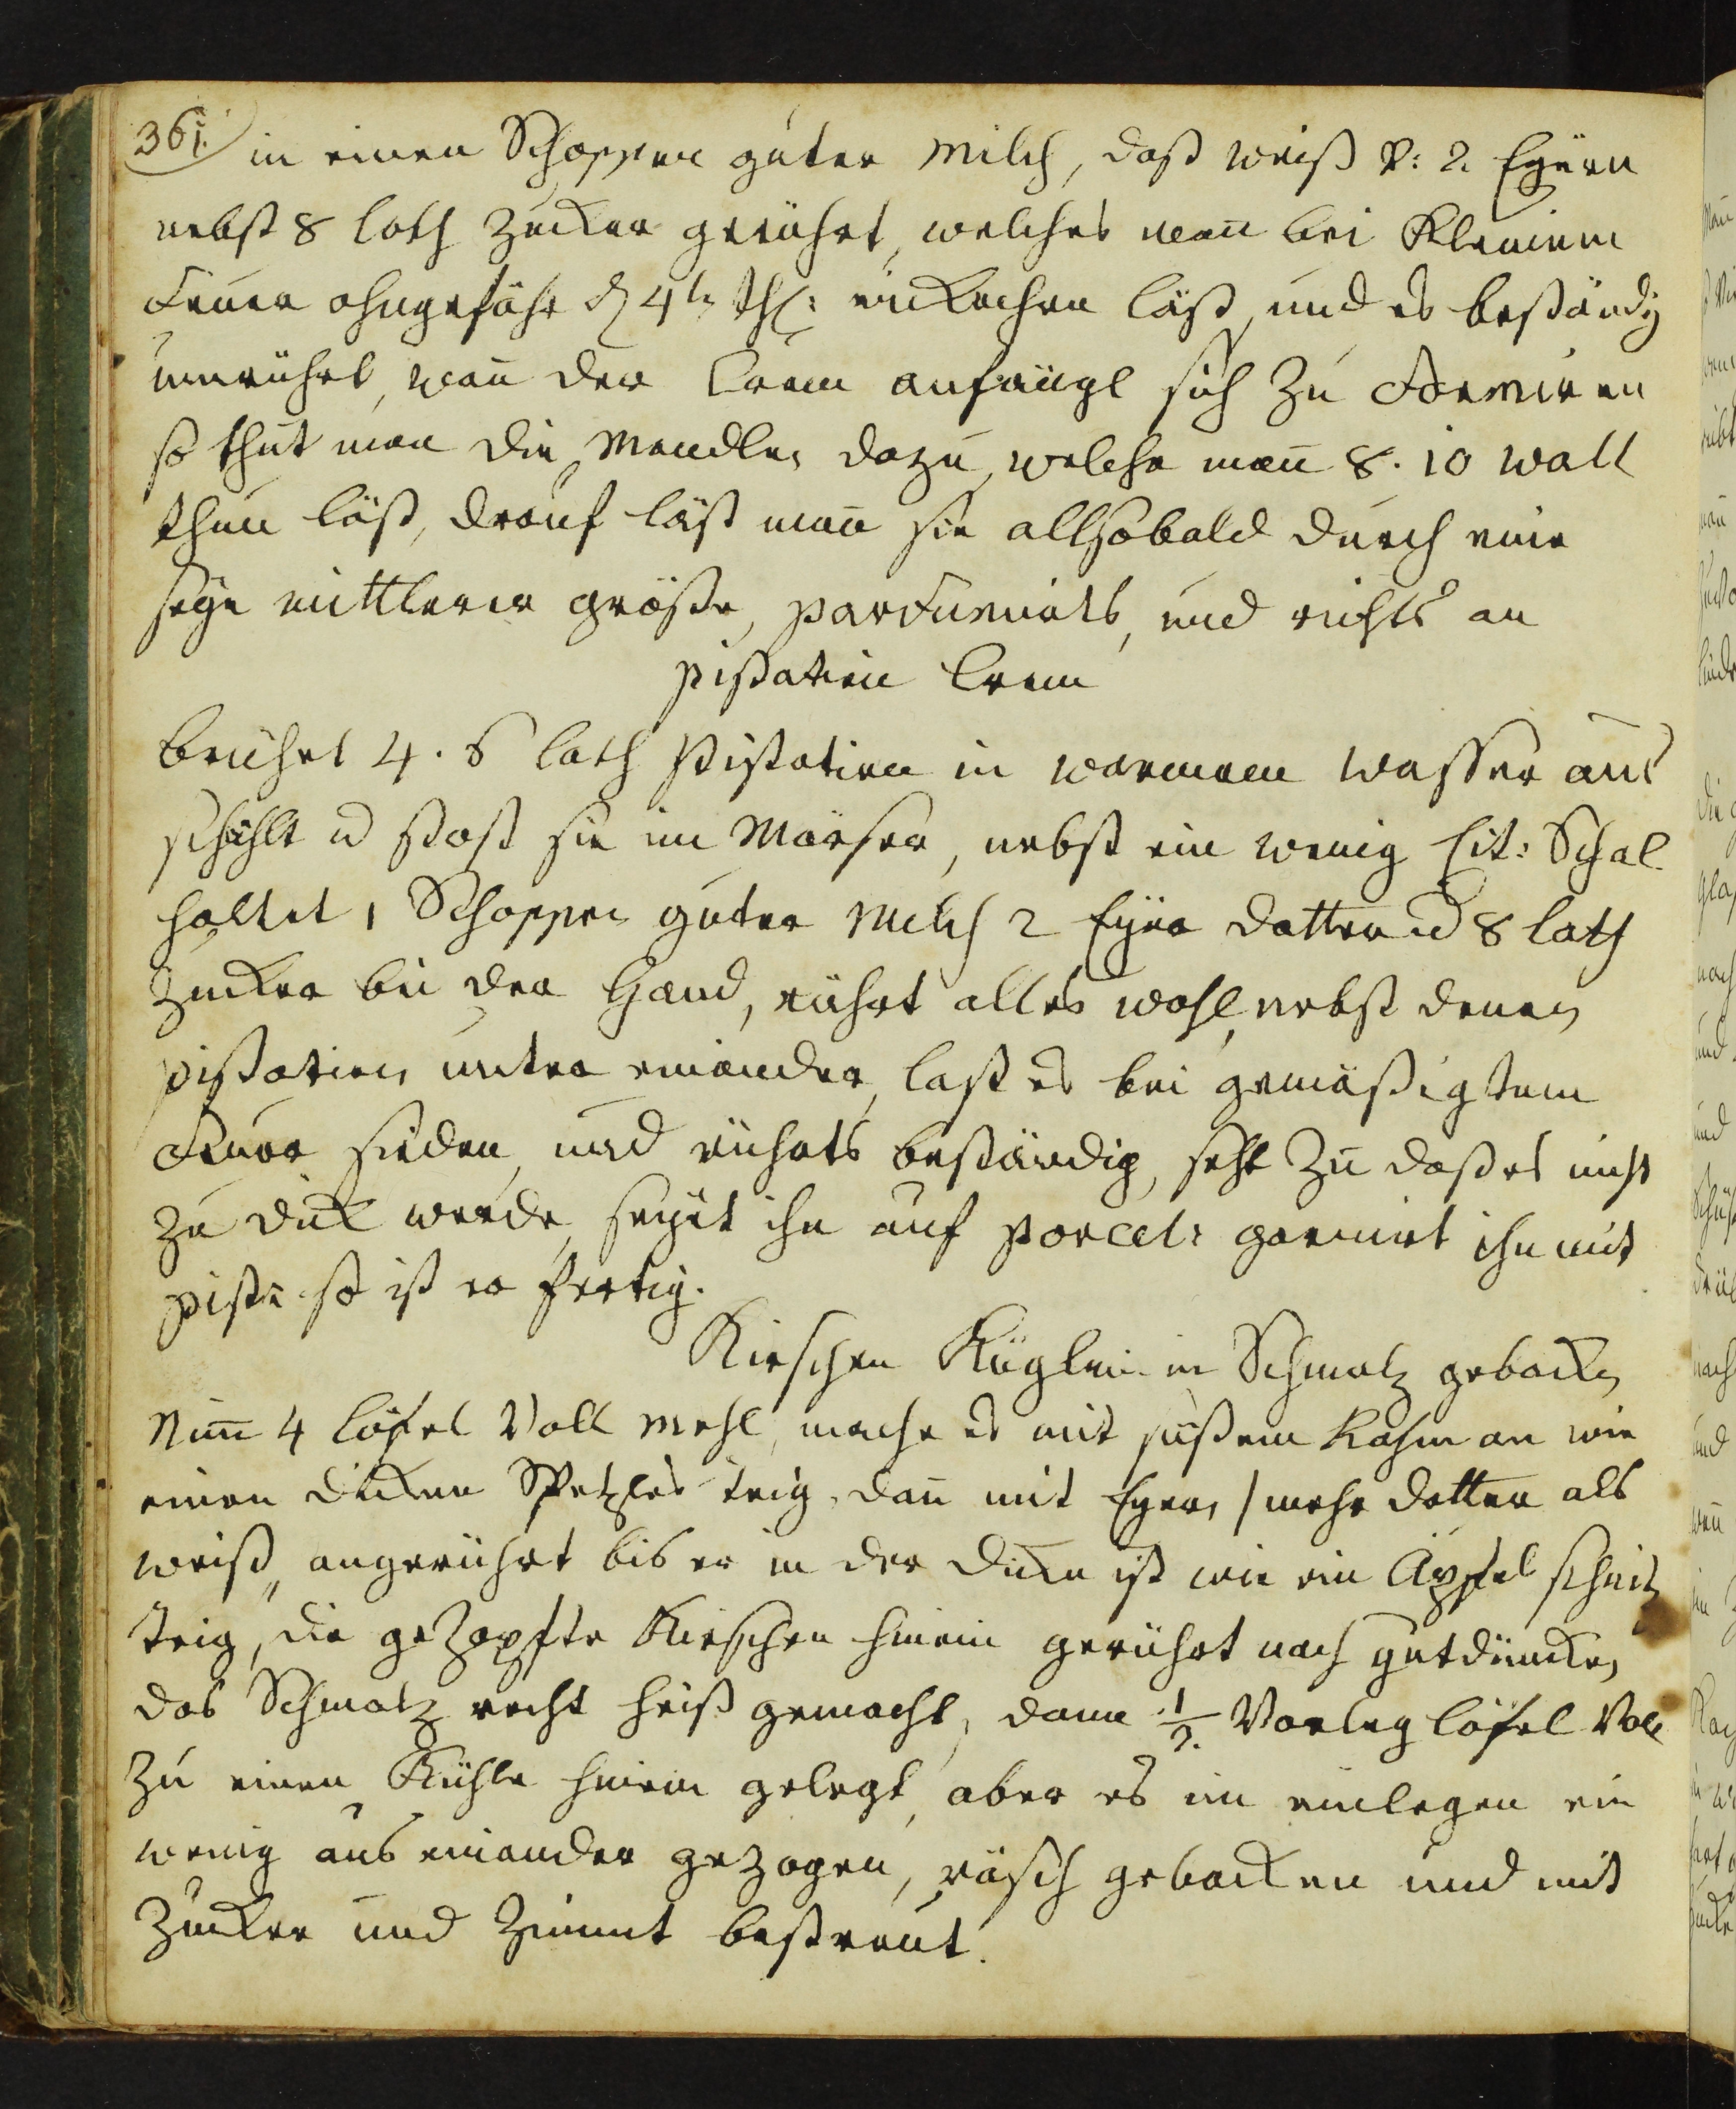 361. in einen Schoppen guter Milch, daß weiß v: 2. Eÿern
nebst 8 loth Zucker gerührt, welches mañ bei Kleinem
Feuer ohngefähr d 4te thl: einkochen läßt, und es beständig
umrührt, wañ der Crem anfängt sich zu Formiren
so thut man die Mandlen dazu, welche mañ 8. 10 wall
thun läßt, drauf läßt mañ sie allsobald durch eine
seÿe mittlerer größe, parfumirts, und richts an
pistatien Crem
brühet 4. 6 loth Pistatien in warmem wasser aus
schählt u stost sie im Mörser, nebst ein wenig Cit: Schal
haltet 1 Schoppen guter Milch 2 Eÿer dotter u 8 loth
Zucker bei der Hand, rührt alles wohl, nebst denen
pistatien unter einander, last es bei gemäßigtem
Feuer sieden, und rührts beständig, seht zu daß es nicht
zu dick werde, seÿet ihn auf Porcel: garnirt ihn mit
pist: so ist er fertig.
Kirschen Küglein in Schmalz gebacken
Nim̃ 4 löfel Voll Mehl, mache es mit süßem Rahm an wie
einen dicken Spetzles teig, dañ mit Eÿer, / mehr dotter als
weiß, angerührt bis er in der dicke ist wie ein Äpfel schnitz
teig, die gezopfte Kirschen hinein gerührt nach gutdüncken
das Schmalz recht heiß gemacht, dann 1/2. Vorleg löfel Voll
zu einem Kühle hinein gelegt, aber es im einlegen ein
wenig aus einander gezogen, räsch gebacken und mit
Zucker und Zimmt bestreut.